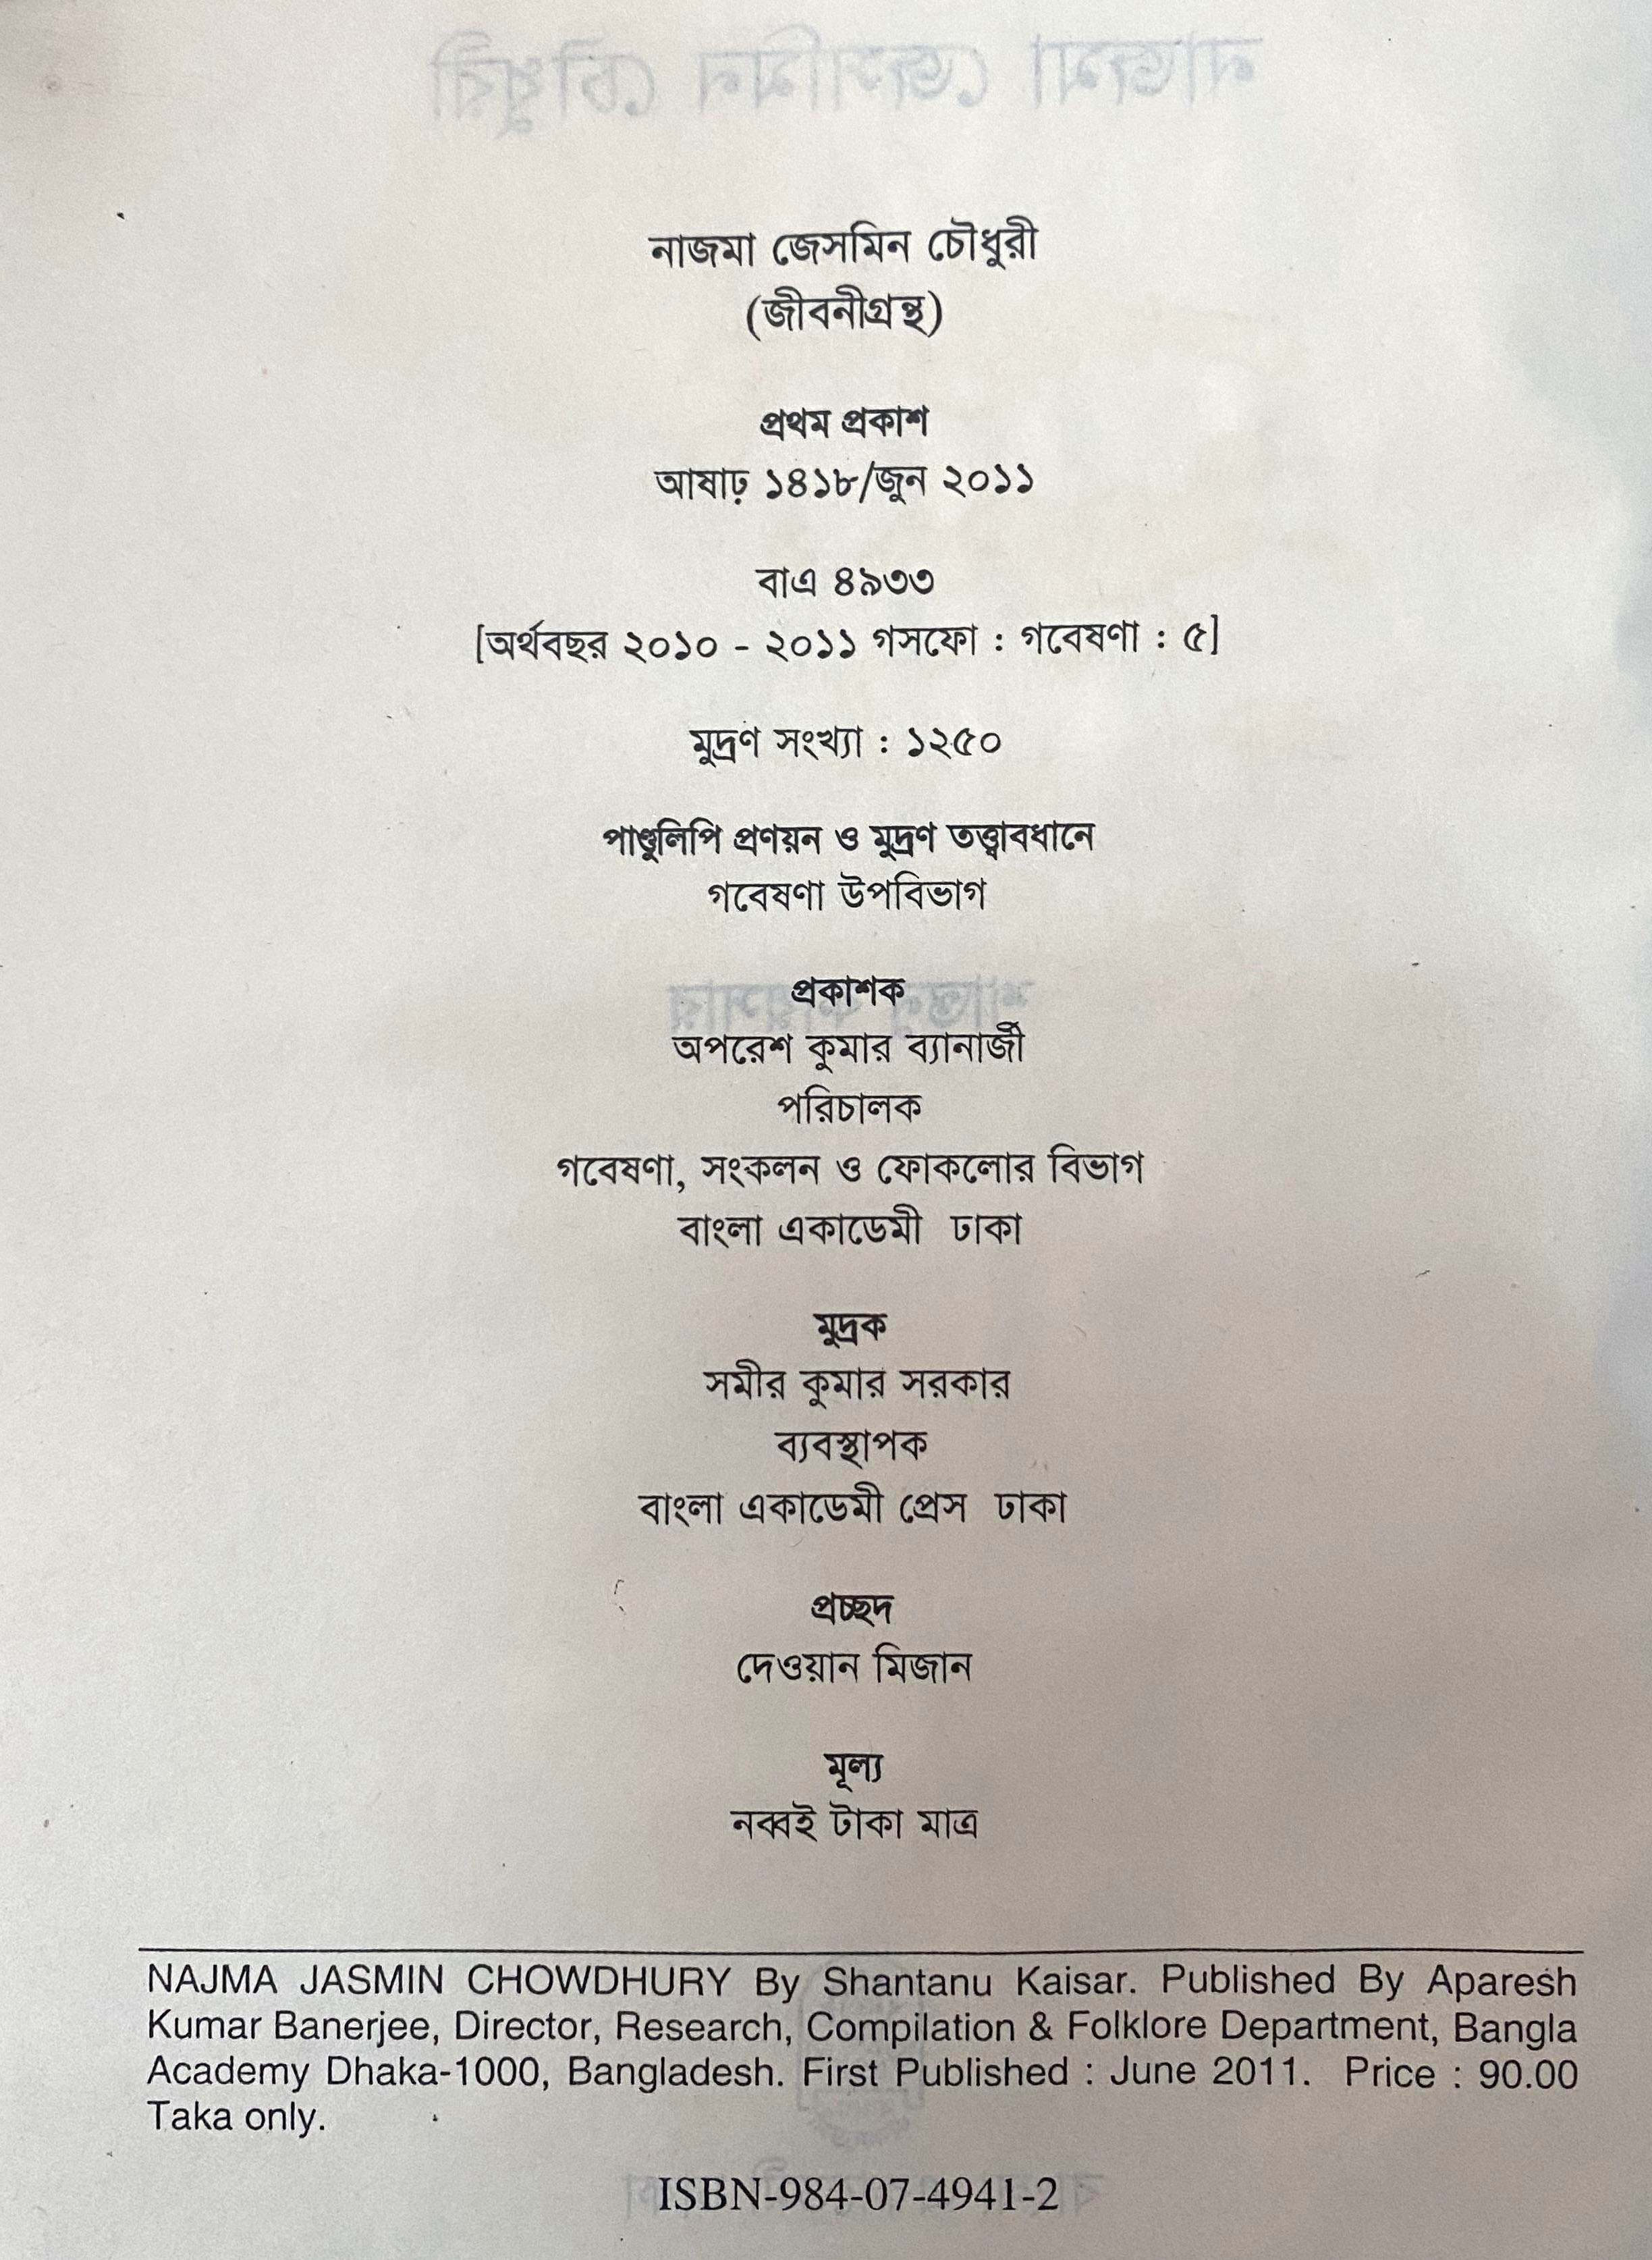 নাজমা জেসমিন চৌধুরী
(জীবনীগ্রন্থ)
প্রথম প্রকাশ
আষাঢ় ১৪১৮/জুন ২০১১
বাএ ৪৯৩৩
[অর্থবছর ২০১০ - ২০১১ গসফো : গবেষণা : ৫]
মুদ্রণ সংখ্যা : ১২৫০
পাণ্ডুলিপি প্রণয়ন ও মুদ্রণ তত্ত্বাবধানে
গবেষণা উপবিভাগ
প্রকাশক
অপরেশ কুমার ব্যানার্জী
পরিচালক
গবেষণা, সংকলন ও ফোকলোর বিভাগ
বাংলা একাডেমী ঢাকা
মুদ্রক
সমীর কুমার সরকার
ব্যবস্থাপক
বাংলা একাডেমী প্রেস ঢাকা
প্রচ্ছদ
দেওয়ান মিজান
মূল্য
নব্বই টাকা মাত্র
NAJMA JASMIN CHOWDHURY By Shantanu Kaisar. Published By Aparesh
Kumar Banerjee, Director, Research, Compilation & Folklore Department, Bangla
Academy Dhaka-1000, Bangladesh. First Published : June 2011. Price : 90.00
Taka only.
ISBN-984-07-4941-2